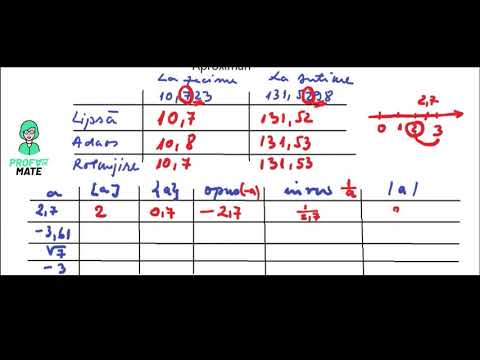 Aproximări
La zecime La sutime
10,723 131,5298
2,7
Lipsă 10,7 131,52
Adaos 10,8 131,53
0 1 2 3
Rotunjire 10,7 131,53
PROFA DE
MATE
a [a] {a} opus(-a) invers 1/a |a|
2,7 2 0,7 -2,7 1/2,7
-3,61
√7
-3